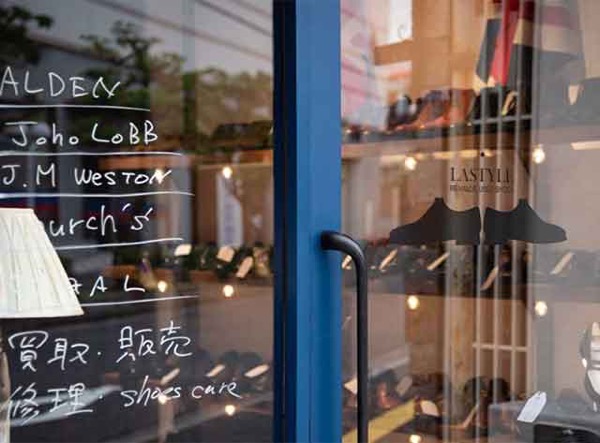 ALDEN
John LOBB
J.M WESTON
urch's
AL
買取・販売
修理・shoes care
LASTYLE